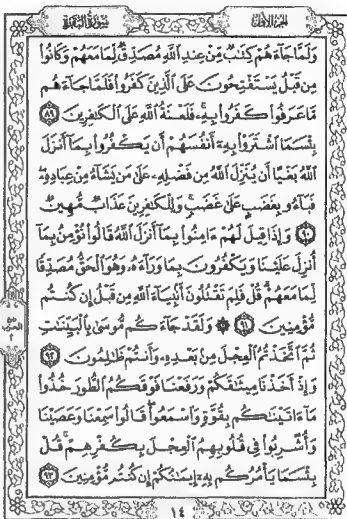 الجزء الأول
سورة البقرة
وَلَمَّا جَآءَهُمْ كِتَٰبٌ مِّنْ عِندِ ٱللَّهِ مُصَدِّقٌ لِّمَا مَعَهُمْ وَكَانُوا۟
مِن قَبْلُ يَسْتَفْتِحُونَ عَلَى ٱلَّذِينَ كَفَرُوا۟ فَلَمَّا جَآءَهُم
مَّا عَرَفُوا۟ كَفَرُوا۟ بِهِۦ فَلَعْنَةُ ٱللَّهِ عَلَى ٱلْكَٰفِرِينَ ٨٩
بِئْسَمَا ٱشْتَرَوْا۟ بِهِۦٓ أَنفُسَهُمْ أَن يَكْفُرُوا۟ بِمَآ أَنزَلَ
ٱللَّهُ بَغْيًا أَن يُنَزِّلَ ٱللَّهُ مِن فَضْلِهِۦ عَلَىٰ مَن يَشَآءُ مِنْ عِبَادِهِۦ
فَبَآءُو بِغَضَبٍ عَلَىٰ غَضَبٍ وَلِلْكَٰفِرِينَ عَذَابٌ مُّهِينٌ
٩٠ وَإِذَا قِيلَ لَهُمْ ءَامِنُوا۟ بِمَآ أَنزَلَ ٱللَّهُ قَالُوا۟ نُؤْمِنُ بِمَآ
أُنزِلَ عَلَيْنَا وَيَكْفُرُونَ بِمَا وَرَآءَهُۥ وَهُوَ ٱلْحَقُّ مُصَدِّقًا
لِّمَا مَعَهُمْ قُلْ فَلِمَ تَقْتُلُونَ أَنۢبِيَآءَ ٱللَّهِ مِن قَبْلُ إِن كُنتُم
مُّؤْمِنِينَ ٩١ ۞ وَلَقَدْ جَآءَكُم مُّوسَىٰ بِٱلْبَيِّنَٰتِ
ثُمَّ ٱتَّخَذْتُمُ ٱلْعِجْلَ مِنۢ بَعْدِهِۦ وَأَنتُمْ ظَٰلِمُونَ ٩٢
وَإِذْ أَخَذْنَا مِيثَٰقَكُمْ وَرَفَعْنَا فَوْقَكُمُ ٱلطُّورَ خُذُوا۟
مَآ ءَاتَيْنَٰكُم بِقُوَّةٍ وَٱسْمَعُوا۟ قَالُوا۟ سَمِعْنَا وَعَصَيْنَا
وَأُشْرِبُوا۟ فِى قُلُوبِهِمُ ٱلْعِجْلَ بِكُفْرِهِمْ قُلْ
بِئْسَمَا يَأْمُرُكُم بِهِۦٓ إِيمَٰنُكُمْ إِن كُنتُم مُّؤْمِنِينَ ٩٣
١٤